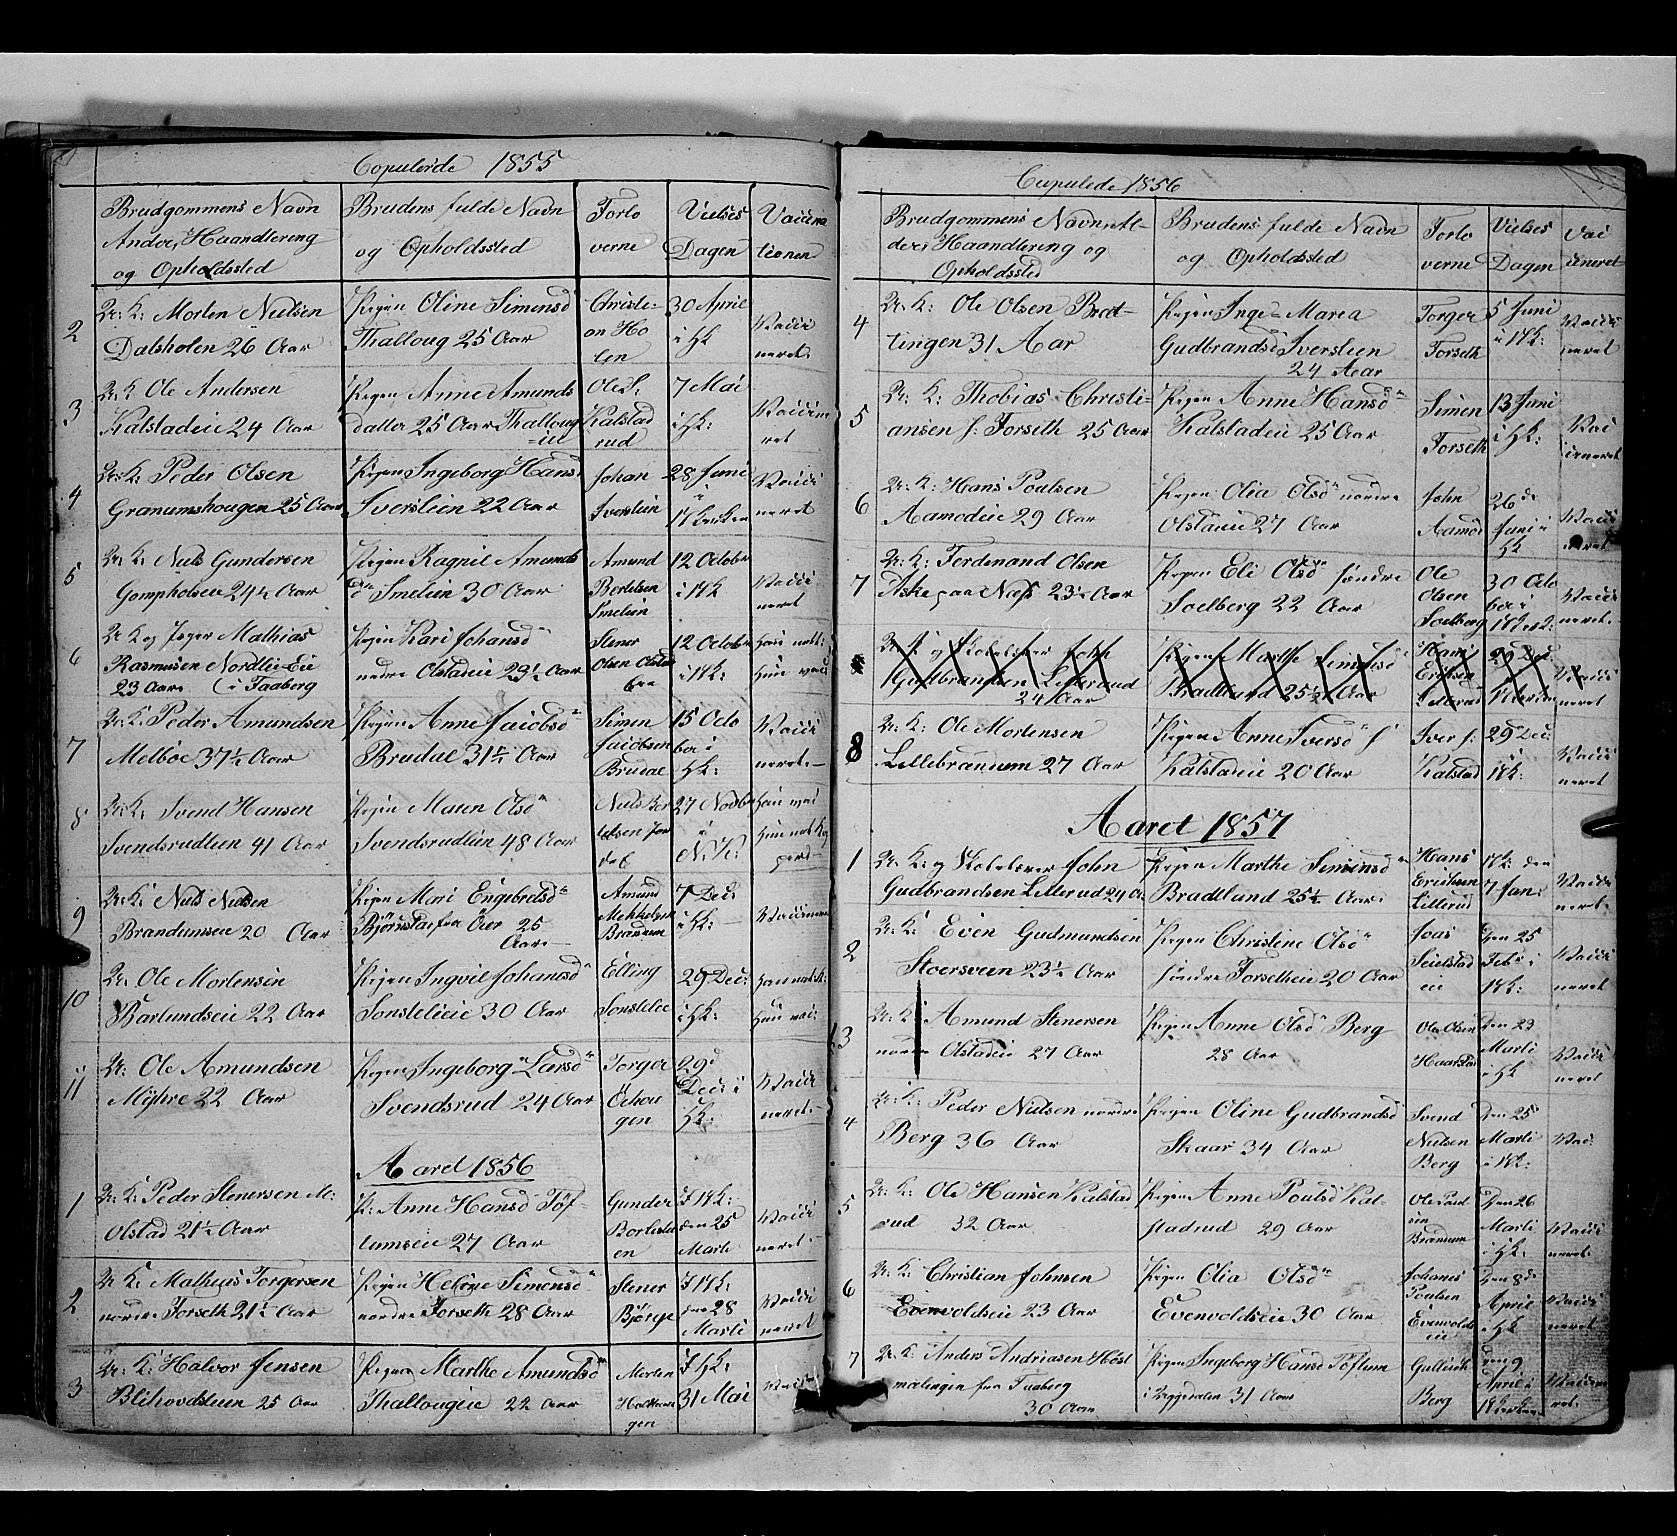 Copulerede 1855
Brudgommens Navn
Alder, Haandtering
og Opholdssted
Brudens fulde Navn
og Opholdssted
Forlo
verne
Vielses
Dagen
Vaccina
tionen
2
U: K: Morten Nielsen
Dalsholen 26 Aar
Pigen Oline Simensd
Thalloug 25 Aar
Christi-
an Ho
len
30 April
i HK
Vacci
neret.
3
U: K Ole Andersen
Kalstadeie 24 Aar
Pigen Anne Amunds
datter 25 Aar Thalloug
=eie
Ole S.
Kalstad
rud
7 Mai
i HK:
Vaccine
ret
4
U: K: Peder Olsen
Granumshougen 25 Aar
Pigen Ingeborg Hansd
Iversliin 22 Aar
Johan
Iversliin
28 Juni
i
Vacci
neret
5
U: K: Niels Gundersen
Gompholeie 24½ Aar
Pigen Ragnil Amunds
d Smeliin 30 Aar
Amund
Bertelsen
Smeliin
12 October
i HK
Vacci
neret
6
U K og Jæger Mathias
Rasmusen Nordlie Eie
23 Aar i Faaberg
Pigen Kari Johansd
nedre Olstadeie 29½ Aar
Stener
Olsen Olstad
12 October
i HK:
7
U: K: Peder Amundsen
Melbøe 37½ Aar
Pigen Anne Jacobsd
Brudal 31½ Aar
Simen
Jacobsen
Brudal
15 Octo
ber i
HK:
Vacci
neret.-
8
U: K: Svend Hansen
Svendsrudliin 41 Aar
Pigen Maren Olsd
Svendsrudliin 48 Aar
Niels Ber
27 Novbr
i
N: K:
9
U: K: Niels Nielsen
Brandumseie 20 Aar
Pigen Mari Engebretsd
Bjørnstad fra Öier 25
Aar.-
Amund
Brandum
7 Dec:
i HK:
10
U: Ole Mortensen
Barlundseie 22 Aar
Pigen Ingvil Johansd
Sonstelieie 30 Aar
Elling
Sonstelie
29 Dec:
i HK:
11
U: Ole Amundsen
Myhre 22 Aar
Pigen Ingeborg Larsd
Svendsrud 24 Aar
Torger
Öehou
gen
29d
Dec: i
HK:
Vacci
neret.-
Aaret 1856
1
U: K: Peder Stenersen M:
Olstad 21½ Aar
P: Anne Hansd Töf-
tumseie 27 Aar
Gunder
den 25
Marts
Vacci
neret.
2
U K: Mathias Torgersen
nordre Forseth 21½ Aar
Pigen Helene Simensd
nordre Forseth 28 Aar
Stener
Bjørge
den 28
Marts
Vacci
neret
3
U: K: Halvor Jensen
Blihovdstuen 25 Aar
Pigen Marthe Amundsd
Thallougeie 22 Aar
Morten
gen
31 Mai
Cupulede 1856
Brudgommens Navn Al-
der, Haandtering og
Opholdssted
Brudens fulde Navn
og Opholdssted
Forlo
verne
Vielses
Dagen
Vac
cineret
4
U: K: Ole Olsen Bræt-
tingen 31 Aar
Pigen Inge=Maria
Gudbrandsd Iversteen
24 Aar
Torger
Forseth
5 Juni
i HK:
Vacci
neret
5
U: K: Thobias Christi-
ansen s. Forseth 25 Aar
Pigen Anne Hansd
Kalstadeie 25 Aar
Simen
Forseth
13 Juni
i HK:
Vac
cineret
6
U: K: Hans Poulsen
Aamodeie 29 Aar
Pigen Olia Olsd nordre
Olstadeie 27 Aar
John
Aamod
26 de
Juni i
HK
Vacci
neret
7
U: K: Ferdenand Olsen
Aske paa Næss 23½ Aar
Pigen Eli Olsd søndre
Soelberg 22 Aar
Ole
Olsen
Soelberg
30 Octo
ber i
Vacci
neret.
U: K og Skolelærer John
Gudbrandsen Lillerud
24 Aar
Pigen Marthe Simensd
Bradtlund 25½ Aar
Hans
Eriksen
Lillerud
29 Dec
neret
8
U: K: Ole Mortensen
Lillebrandum 27 Aar
Pigen Anne Iversd s
Kalstadeie 20 Aar
Iver s:
Kalstad
29 Dec:
i HK:
Vacci
neret
Aaret 1857
1
U: K: og Skolelærer John
Gudbrandsen Lillerud 24 A.
Pigen Marthe Simensd
Bradtlund 25½ Aar.
Hans
Eriksen
Lillerud
HK: den
7 Jan:
Vacci
neret.
2
U: K: Even Gudmundsen
Stoersveen 23½ Aar
Pigen Christine Olsd
søndre Forsetheie 20 Aar
eie
Den 25
Feb: i
HK:
Vacci
neret
3
U: K: Amund Stenersen
nordre Olstadeie 27 Aar
Pigen Anne Olsd Berg
28 Aar
Ole Olsen
Haarstad
Den 23
Marts
i HK
Vacci
neret
4
U: K: Peder Nielsen nordre
Berg 36 Aar
Pigen Oline Gudbrandsd
Skaar 34 Aar
Svend
Nielsen
Berg
Den 25
Marts
i HK:
Vac
5
U: K: Ole Hansen Kalstad
rud 32 Aar
Pigen Anne Poulsd Kal-
stadrud 29 Aar
Ole Poul
sen
Brandum
Den 26
Marts
i HK:
Vacci
neret.
6
U: K: Christian Johnsen
Evenvoldseie 23 Aar
Pigen Olia Olsd
Evenvoldseie 30 Aar
Johanes
Poulsen
Evenvolds
eie
Den 8de
April
i HK
Vacci
neret
7
U: K: Anders Andriasen Höst
mælingen fra Faaberg
30 Aar
Pigen Ingeborg Hansd Töftum
i Biggedalen 31 Aar
Gullick
Berg
den 9
April i